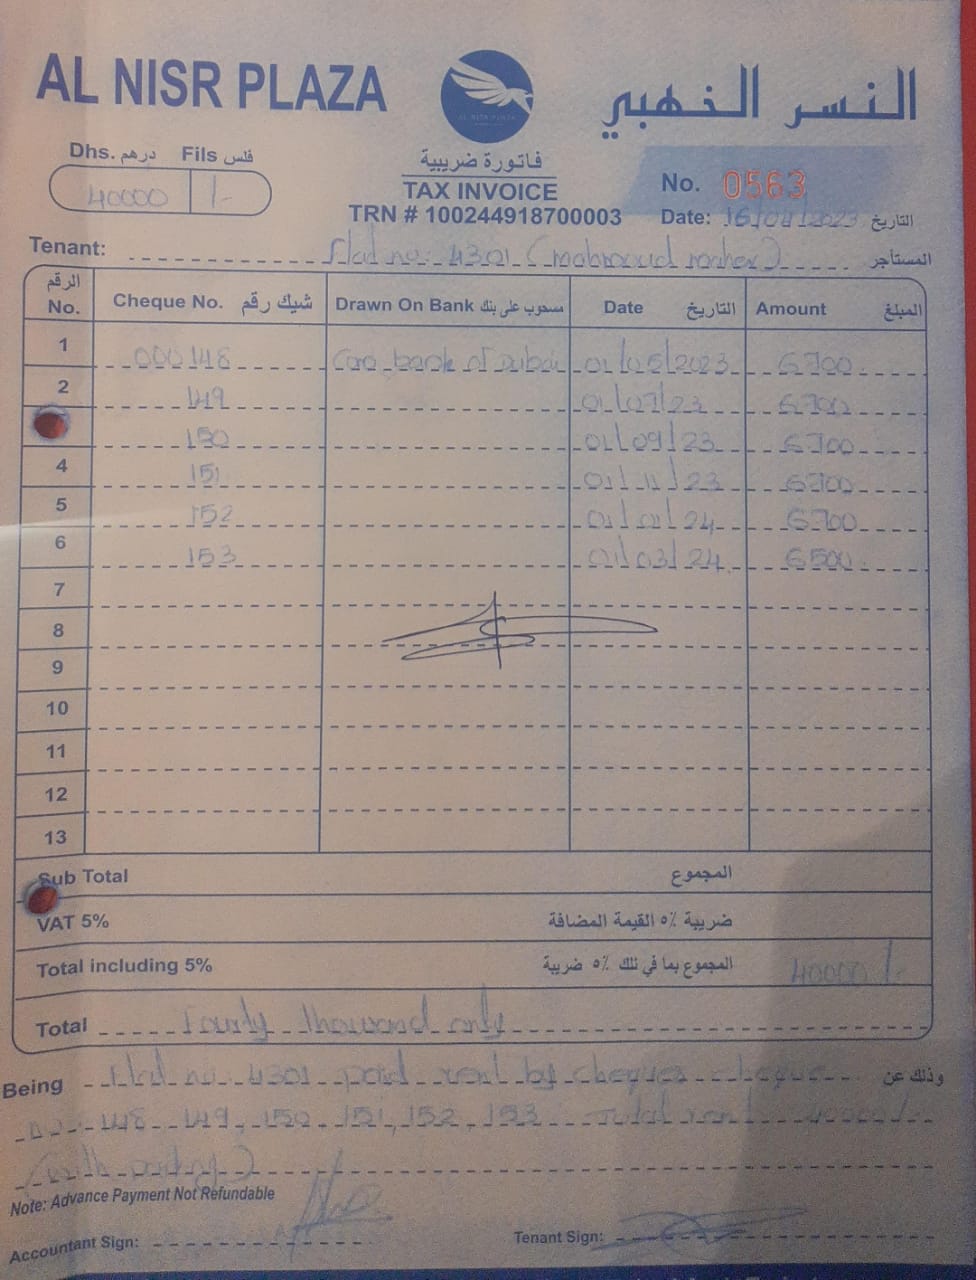 AL NISR PLAZA
AL NISR PLAZA
النسر الخهبي
Dhs. درهم Fils فلس
40000 /-
فاتورة ضريبية
TAX INVOICE
TRN # 100244918700003
No. 0563
Date: 16/04/2023 التاريخ
Tenant: Flat no: 4301 (mahmoud maher) المستأجر
الرقم No. Cheque No. شيك رقم Drawn On Bank مسحوب على بنك Date التاريخ Amount المبلغ
1 000148 bank of Dubai 01/05/2023 6700
2 149 01/07/23 6700
150 01/09/23 6700
4 151 01/11/23 6700
5 152 01/01/24 6700
6 153 01/03/24 6500
7
8
9
10
11
12
13
Sub Total المجموع
VAT 5% ضريبة ٥٪ القيمة المضافة
Total including 5% المجموع بما في ذلك ٥٪ ضريبة 40000/-
Total Fourty thousand only
Being Flat no: 4301 paid rent by cheques cheque وذلك عن
no: 148, 149, 150, 151, 152, 153 Total rent 40000/-
(with parking)
Note: Advance Payment Not Refundable
Accountant Sign:
Tenant Sign: